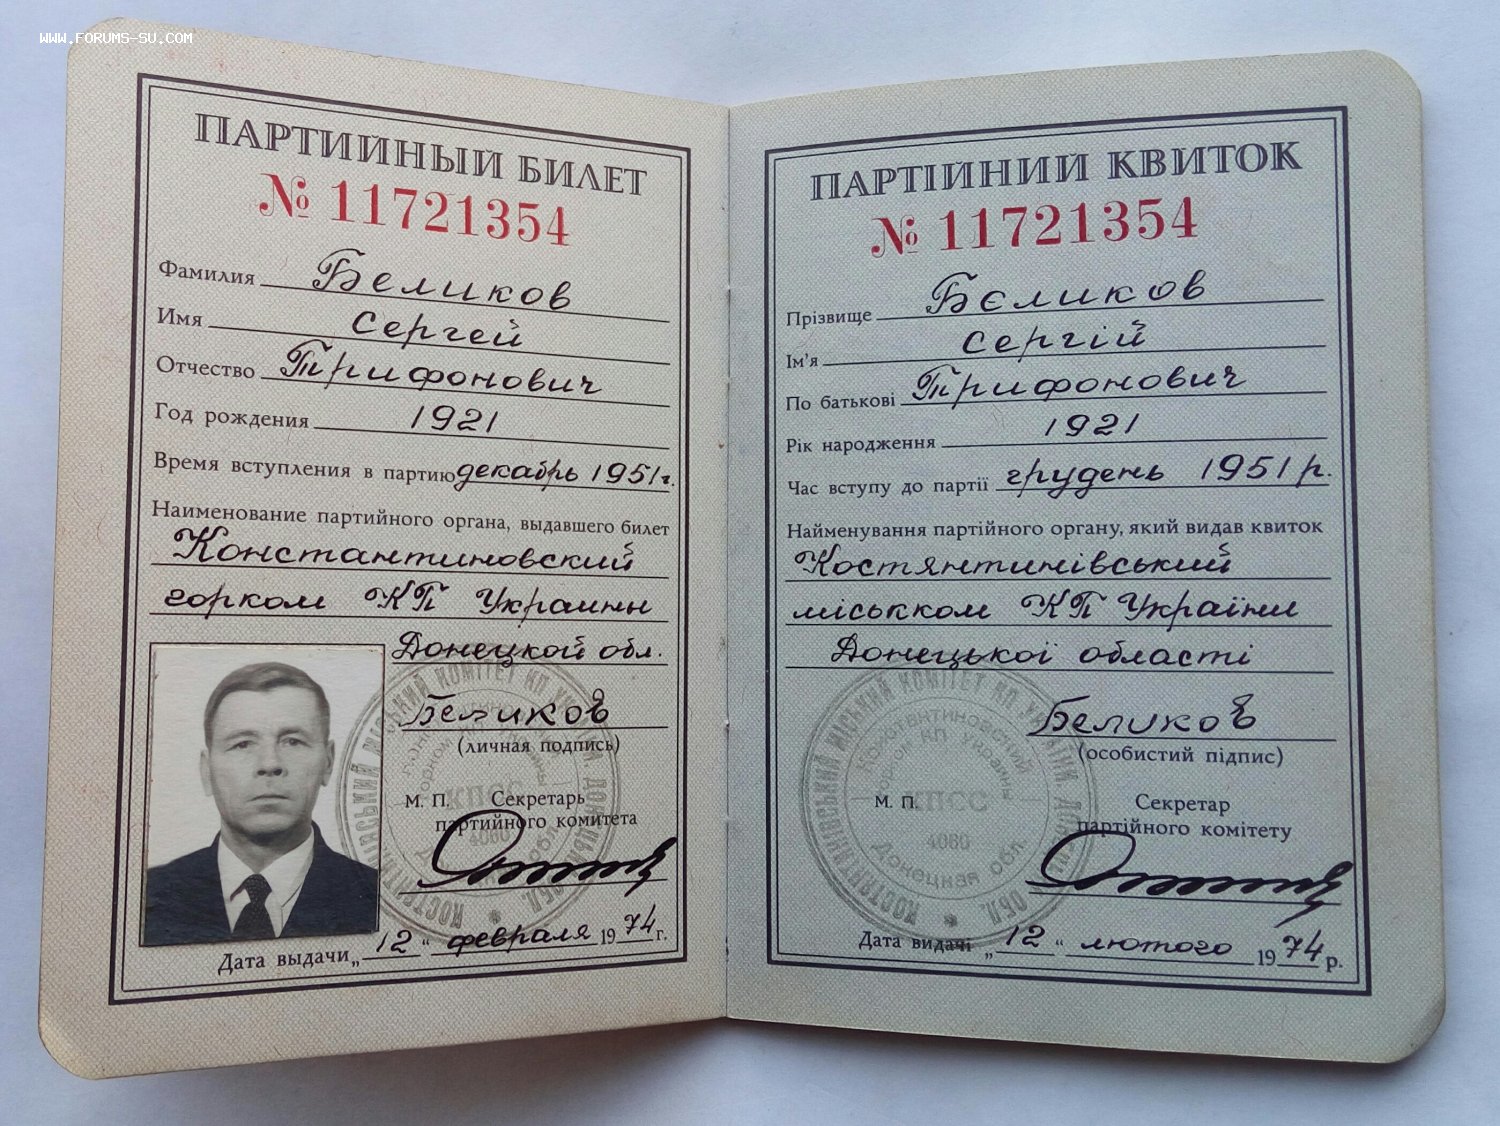 WWW.FORUMS-SU.COM
ПАРТИЙНЫЙ БИЛЕТ
№ 11721354
Фамилия Беликов
Имя Сергей
Отчество Трифонович
Год рождения 1921
Время вступления в партию декабрь 1951 г.
Наименование партийного органа, выдавшего билет
Константиновский
горком КП Украины
Донецкой обл.
Беликов
(личная подпись)
М. П. Секретарь
партийного комитета
Дата выдачи „12“ февраля 1974 г.
ПАРТІЙНИЙ КВИТОК
№ 11721354
Прізвище Бєликов
Ім’я Сергій
По батькові Трифонович
Рік народження 1921
Час вступу до партії грудень 1951 р.
Найменування партійного органу, який видав квиток
Костянтинівський
міськком КП України
Донецької області
Беликов
(особистий підпис)
М. П. Секретар
партійного комітету
Дата видачі „12“ лютого 1974 р.
КОСТЯНТИНІВСЬКИЙ МІСЬКИЙ КОМІТЕТ КП УКРАЇНИ ДОНЕЦЬКОЇ ОБЛ.
Константиновский
горком КП Украины
КПСС
4060
Донецкая обл.